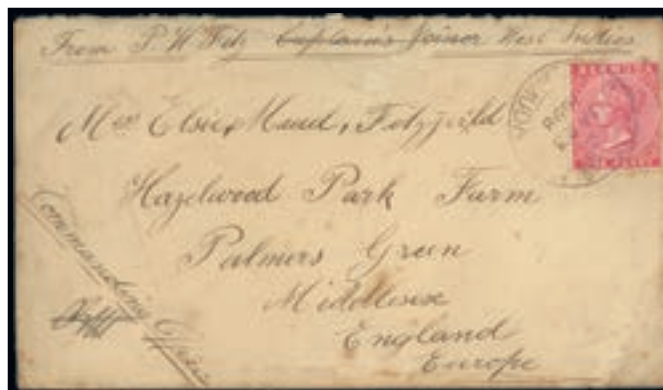 From P W Fitz Captain's Joiner West Indies
BERMUDA
ONE PENNY
Miss Elsie, Maud, Fitzgerald
Hazelwood Park Farm
Palmers Green
Middlesex
England
Europe
Commanding Officer